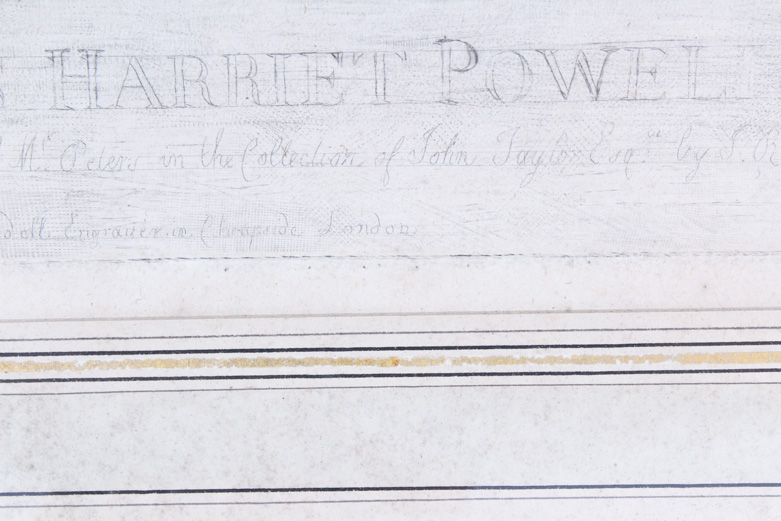 HARRIET POWELL
Mr. Peters in the Collection of John Taylor Esqr. by J.
Engraver in Cheapside London